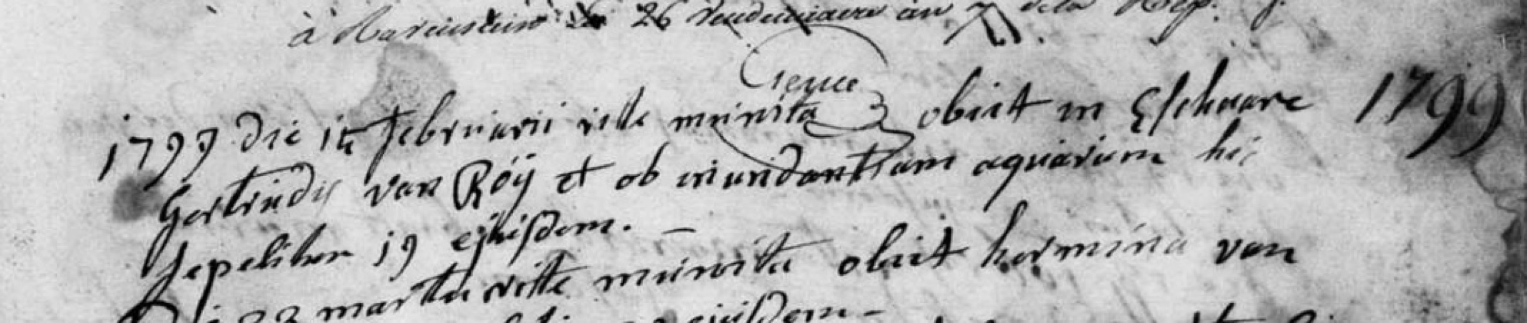 à 26 Vendemiaire an 7 de la Rep.
Geuce
1799 die 14 februarii rite munita obiit in Eschaare 1799
Gertrudis van Röÿ et ob inundantiam aquarum hic
sepelitur 19 ejusdem. —
22 martii rite munita obiit hermina van
ejusdem -